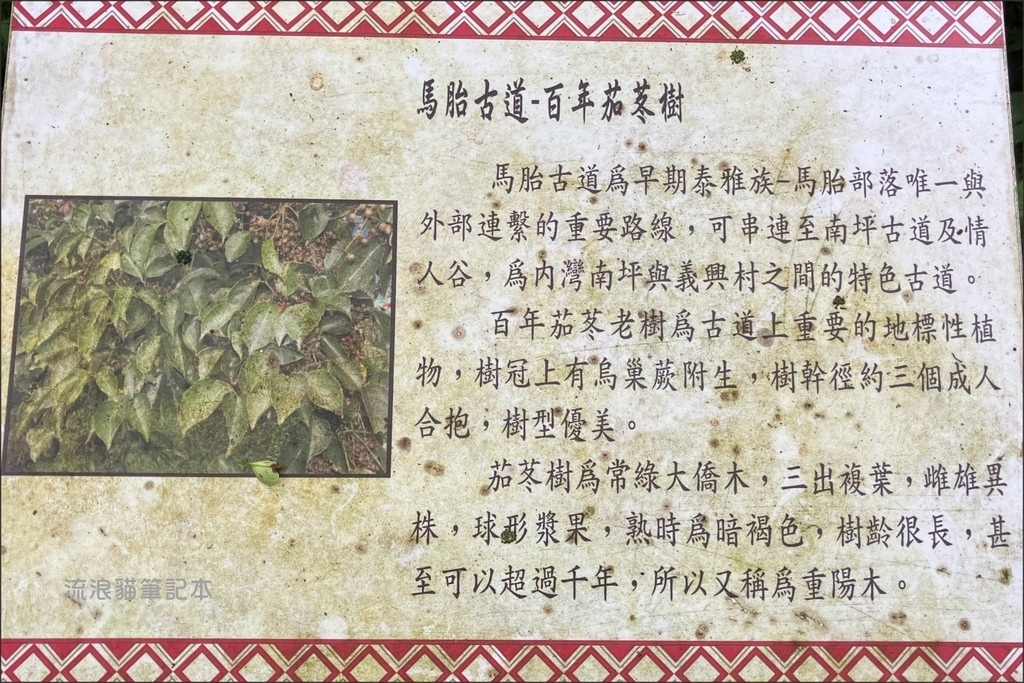 馬胎古道-百年茄苳樹
馬胎古道為早期泰雅族-馬胎部落唯一與
外部連繫的重要路線，可串連至南坪古道及情
人谷，為內灣南坪與義興村之間的特色古道。
百年茄苳老樹為古道上重要的地標性植
物，樹冠上有鳥巢蕨附生，樹幹徑約三個成人
合抱，樹型優美。
茄苳樹為常綠大僑木，三出複葉，雌雄異
株，球形漿果，熟時為暗褐色，樹齡很長，甚
至可以超過千年，所以又稱為重陽木。
流浪貓筆記本